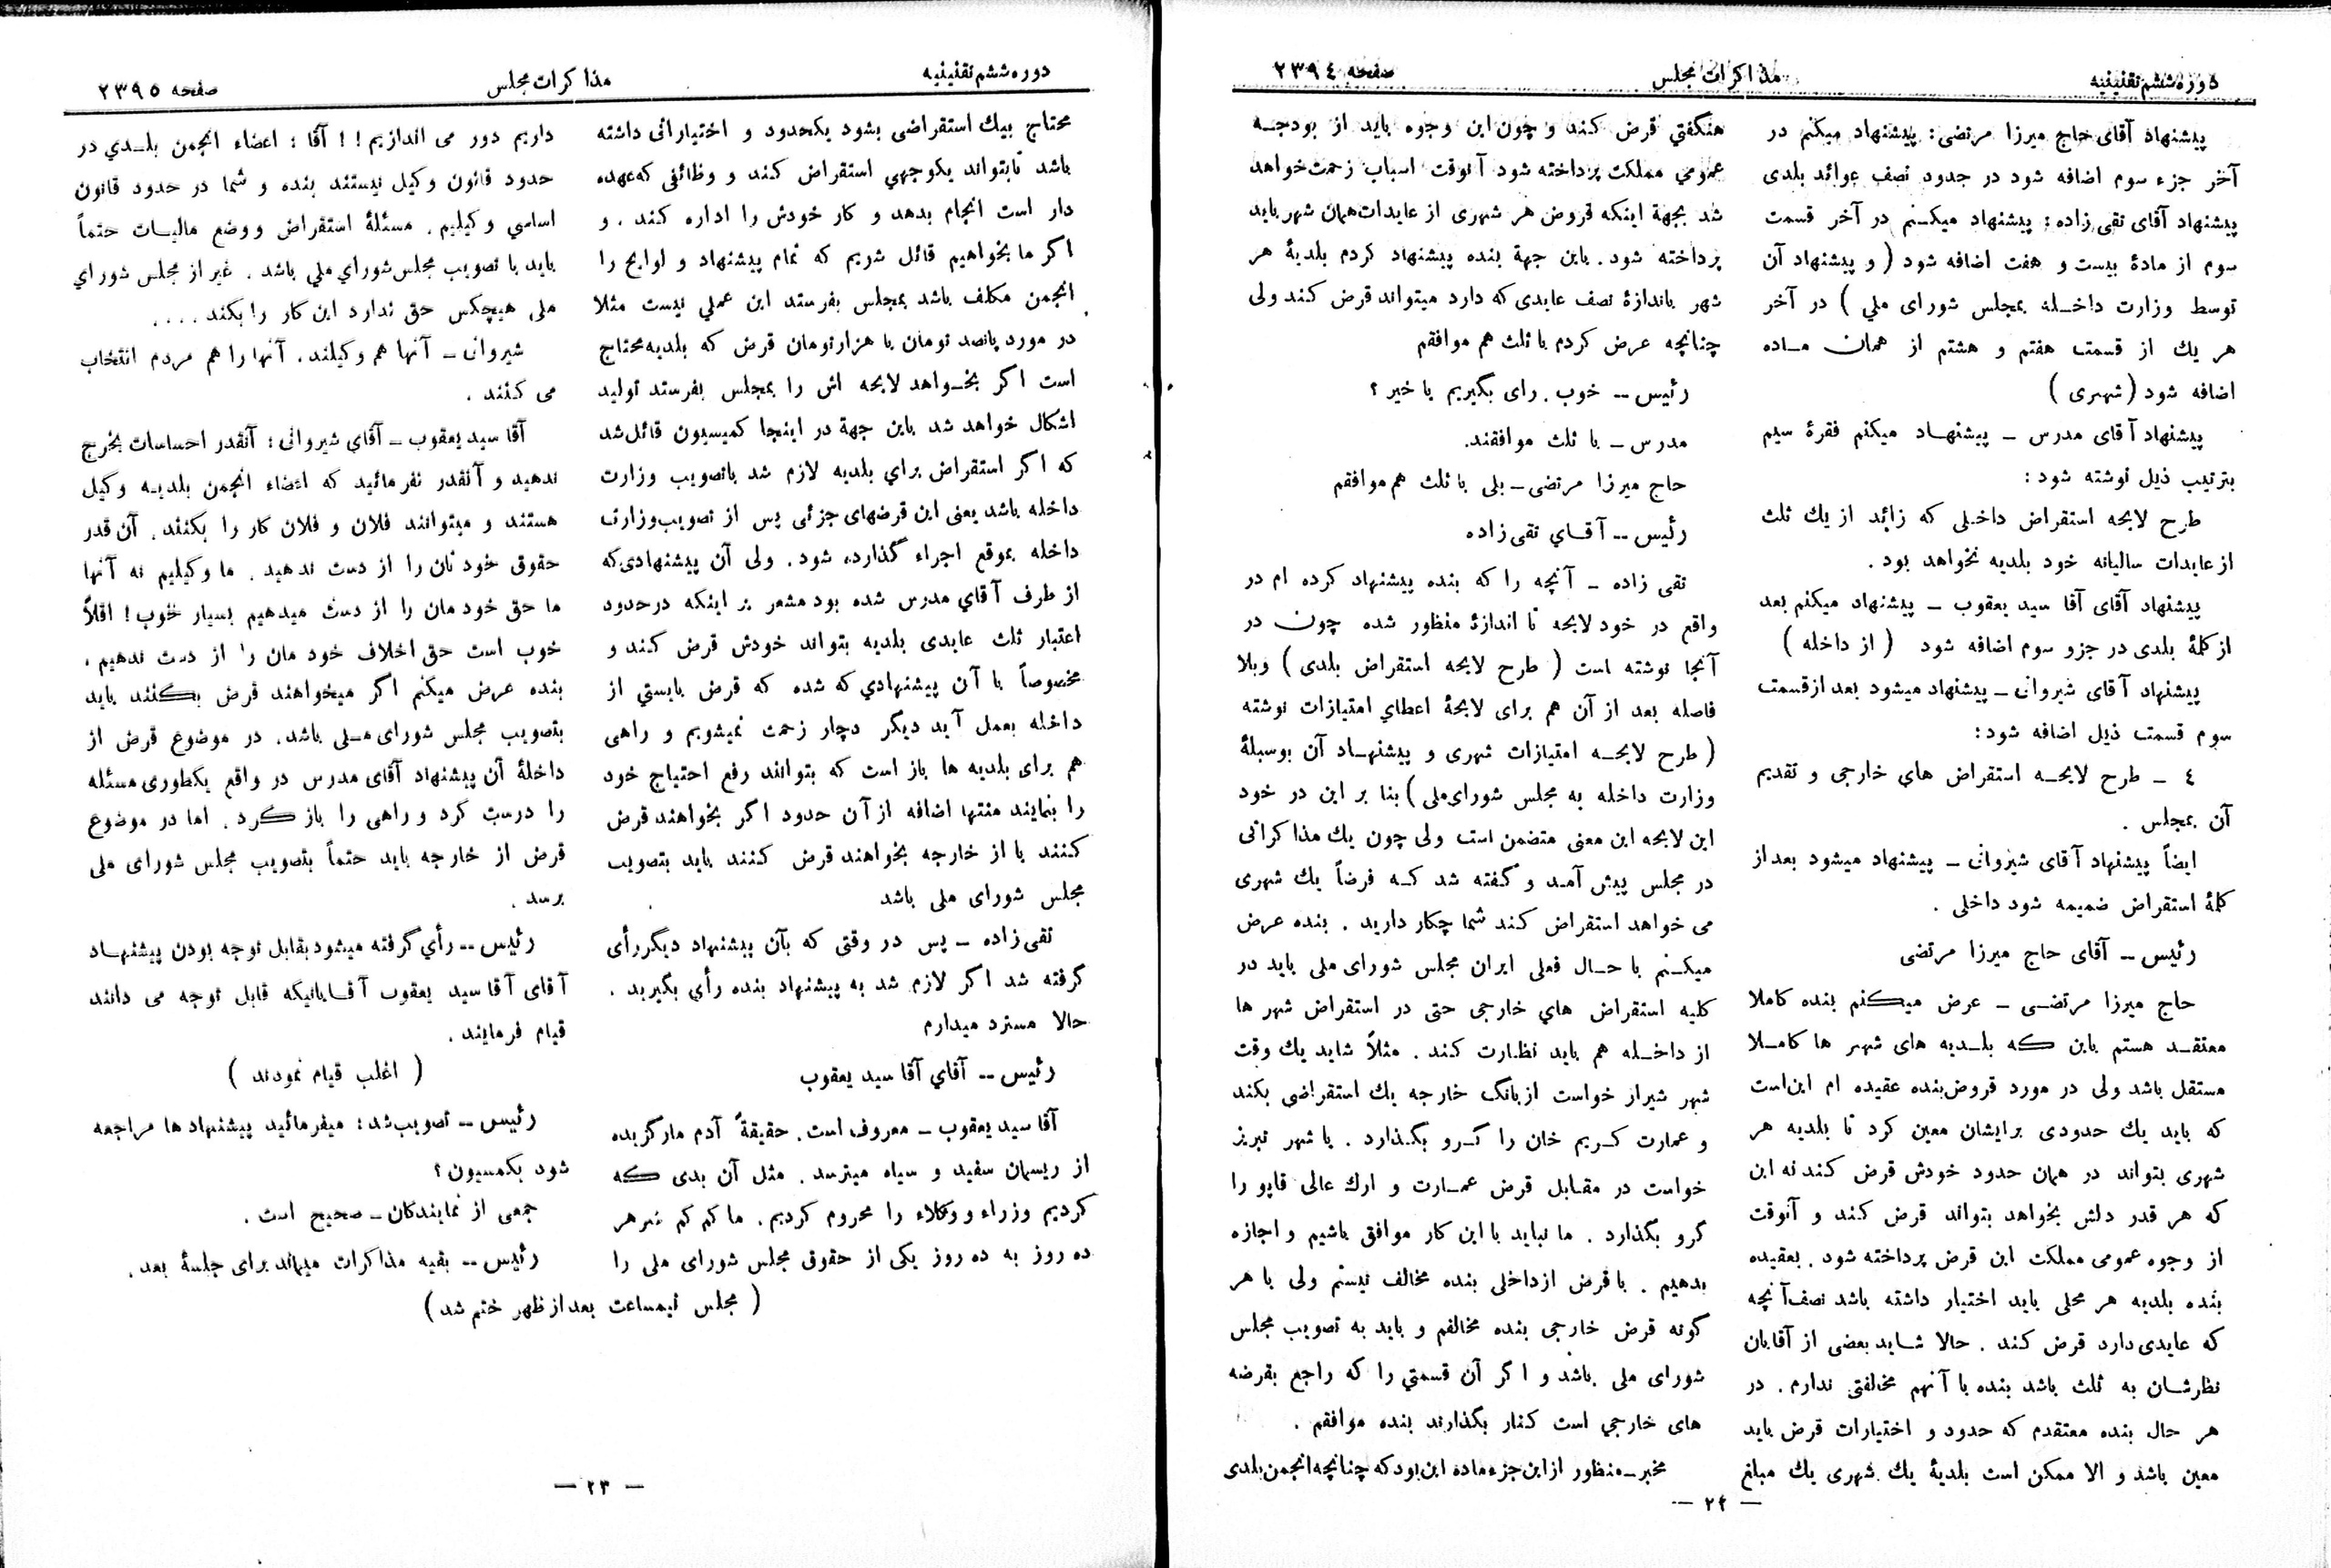 دوره ششم تقنینیه
مذاکرات مجلس
صفحه ۲۳۹٤
پیشنهاد آقای حاج میرزا مرتضی: پیشنهاد میکنم در
آخر جزء سوم اضافه شود در حدود نصف عوائد بلدی
پیشنهاد آقای تقی زاده: پیشنهاد میکنم در آخر قسمت
سوم از مادهٔ بیست و هفت اضافه شود ( و پیشنهاد آن
توسط وزارت داخله بمجلس شورای ملي ) در آخر
هر یك از قسمت هفتم و هشتم از همان ماده
اضافه شود ( شهری )
پیشنهاد آقای مدرس ـ پیشنهاد میکنم فقرهٔ سیم
بترتیب ذیل نوشته شود :
طرح لایحه استقراض داخلی که زائد از یك ثلث
از عایدات سالیانه خود بلدیه نخواهد بود .
پیشنهاد آقای آقا سید یعقوب ـ پیشنهاد میکنم بعد
از کلمهٔ بلدی در جزو سوم اضافه شود ( از داخله )
پیشنهاد آقای شیروانی ـ پیشنهاد میشود بعد از قسمت
سوم قسمت ذیل اضافه شود :
٤ ـ طرح لایحه استقراض هاي خارجی و تقدیم
آن بمجلس .
ایضاً پیشنهاد آقای شیروانی ـ پیشنهاد میشود بعد از
کلمهٔ استقراض ضمیمه شود داخلی .
رئیس ـ آقای حاج میرزا مرتضی
حاج میرزا مرتضی ـ عرض میکنم بنده کاملا
معتقد هستم باین که بلدیه های شهر ها کاملا
مستقل باشد ولی در مورد قروض بنده عقیده ام این است
که باید یك حدودی برایشان معین کرد تا بلدیه هر
شهری بتواند در همان حدود خودش قرض کند نه این
که هر قدر دلش بخواهد بتواند قرض کند و آنوقت
از وجوه عمومی مملکت این قرض پرداخته شود . بعقیده
بنده بلدیه هر محلی باید اختیار داشته باشد نصف آنچه
که عایدی دارد قرض کند . حالا شاید بعضی از آقایان
نظرشان به ثلث باشد بنده با آنهم مخالفتی ندارم . در
هر حال بنده معتقدم که حدود و اختیارات قرض باید
معین باشد و الا ممکن است بلدیهٔ یك شهری یك مبلغ
هنگفتي قرض کند و چون این وجوه باید از بودجه
عمومي مملکت پرداخته شود آنوقت اسباب زحمت خواهد
شد بجهة اینکه قروض هر شهری از عایدات همان شهر باید
پرداخته شود . باین جهة بنده پیشنهاد کردم بلدیهٔ هر
شهر باندازهٔ نصف عایدی که دارد میتواند قرض کند ولی
چنانچه عرض کردم با ثلث هم موافقم
رئیس ـ خوب . رای بگیریم یا خیر ؟
مدرس ـ با ثلث موافقند.
حاج میرزا مرتضی ـ بلی با ثلث هم موافقم
رئیس ـ آقاي تقی زاده
تقی زاده ـ آنچه را که بنده پیشنهاد کرده ام در
واقع در خود لایحه تا اندازهٔ منظور شده چون در
آنجا نوشته است ( طرح لایحه استقراض بلدی ) وبلا
فاصله بعد از آن هم برای لایحهٔ اعطاي امتیازات نوشته
( طرح لایحه امتیازات شهری و پیشنهاد آن بوسیلهٔ
وزارت داخله به مجلس شورای ملی ) بنا بر این در خود
این لایحه این معنی متضمن است ولی چون یك مذاکراتی
در مجلس پیش آمد و گفته شد که فرضاً یك شهری
می خواهد استقراض کند شما چکار دارید . بنده عرض
میکنم با حال فعلی ایران مجلس شورای ملی باید در
کلیه استقراض هاي خارجی حتی در استقراض شهر ها
از داخله هم باید نظارت کند . مثلاً شاید یك وقت
شهر شیراز خواست از بانك خارجه یك استقراضی بکند
و عمارت کریم خان را گرو بگذارد . یا شهر تبریز
خواست در مقابل قرض عمارت و ارك عالی قاپو را
گرو بگذارد . ما نباید با این کار موافق باشیم و اجازه
بدهیم . با قرض از داخلی بنده مخالف نیستم ولی با هر
گونه قرض خارجی بنده مخالفم و باید به تصویب مجلس
شورای ملی باشد و اگر آن قسمتي را که راجع بقرضه
های خارجي است کنار بگذارند بنده موافقم .
مخبر ـ منظور از این جزء ماده این بود که چنانچه انجمن بلدی
— ۲۲ —
دوره ششم تقنینیه
مذاکرات مجلس
صفحه ۲۳۹٥
محتاج بیك استقراضی بشود یکحدود و اختیاراتی داشته
باشد تا بتواند یکوجهي استقراض کند و وظائفی که عهده
دار است انجام بدهد و کار خودش را اداره کند . و
اگر ما بخواهیم قائل شویم که تمام پیشنهاد و لوایح را
انجمن مکلف باشد بمجلس بفرستد این عملي نیست مثلا
در مورد پانصد تومان یا هزار تومان قرض که بلدیه محتاج
است اگر بخواهد لایحه اش را بمجلس بفرستد تولید
اشکال خواهد شد باین جهة در اینجا کمیسیون قائل شد
که اگر استقراض براي بلدیه لازم شد با تصویب وزارت
داخله باشد یعنی این قرضهای جزئی پس از تصویب وزارت
داخله بموقع اجراء گذارده شود . ولی آن پیشنهادی که
از طرف آقاي مدرس شده بود مشعر بر اینکه در حدود
اعتبار ثلث عایدی بلدیه بتواند خودش قرض کند و
مخصوصاً با آن پیشنهادي که شده که قرض بایستي از
داخله بعمل آید دیگر دچار زحمت نمیشویم و راهی
هم برای بلدیه ها باز است که بتوانند رفع احتیاج خود
را بنمایند منتها اضافه از آن حدود اگر بخواهند قرض
کنند یا از خارجه بخواهند قرض کنند باید بتصویب
مجلس شورای ملی باشد
تقی زاده ـ پس در وقتی که بآن پیشنهاد دیگر رأی
گرفته شد اگر لازم شد به پیشنهاد بنده رأي بگیرید .
حالا مسترد میدارم
رئیس ـ آقاي آقا سید یعقوب
آقا سید یعقوب ـ معروف است . حقیقةً آدم مار گزیده
از ریسمان سفید و سیاه میترسد . مثل آن بدی که
کردیم وزراء و وکلاء را محروم کردیم . ما کم کم سر هر
ده روز به ده روز یکی از حقوق مجلس شورای ملی را
داریم دور می اندازیم ! ! آقا : اعضاء انجمن بلدي در
حدود قانون وکیل نیستند بنده و شما در حدود قانون
اساسي وکیلیم . مسئلهٔ استقراض و وضع مالیات حتماً
باید با تصویب مجلس شوراي ملي باشد . غیر از مجلس شوراي
ملی هیچکس حق ندارد این کار را بکند ....
شیروانی ـ آنها هم وکیلند . آنها را هم مردم انتخاب
می کنند .
آقا سید یعقوب ـ آقای شیروانی : آنقدر احساسات بخرج
ندهید و آنقدر نفرمائید که اعضاء انجمن بلدیه وکیل
هستند و میتوانند فلان و فلان کار را بکنند . آن قدر
حقوق خودتان را از دست ندهید . ما وکیلیم نه آنها
ما حق خودمان را از دست میدهیم بسیار خوب ! اقلاً
خوب است حق اخلاف خودمان را از دست ندهیم .
بنده عرض میکنم اگر میخواهند قرض بکنند باید
بتصویب مجلس شورای ملی باشد . در موضوع قرض از
داخلهٔ آن پیشنهاد آقای مدرس در واقع یکطوری مسئله
را درست کرد و راهی را باز کرد . اما در موضوع
قرض از خارجه باید حتماً بتصویب مجلس شورای ملی
برسد .
رئیس ـ رأي گرفته میشود بقابل توجه بودن پیشنهاد
آقای آقا سید یعقوب آقایانیکه قابل توجه می دانند
قیام فرمایند .
( اغلب قیام نمودند )
رئیس ـ تصویب شد : میفرمائید پیشنهاد ها مراجعه
شود بکمسیون ؟
جمعی از نمایندگان ـ صحیح است .
رئیس ـ بقیه مذاکرات میماند برای جلسهٔ بعد .
( مجلس نیمساعت بعد از ظهر ختم شد )
— ۲۳ —